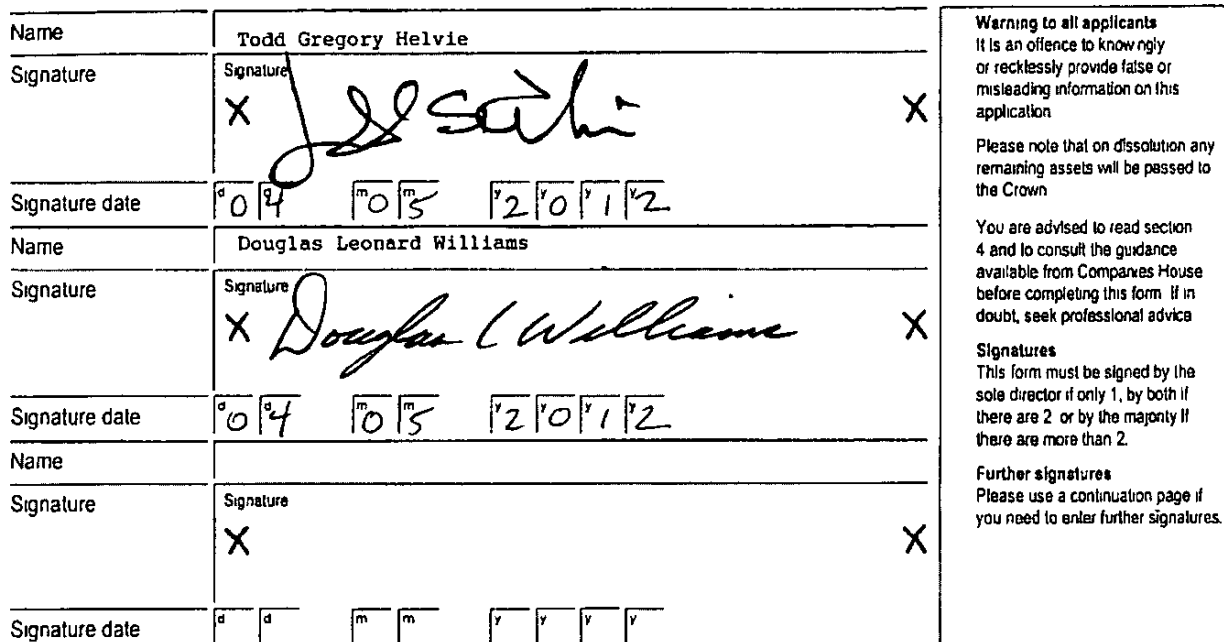 Name
Todd Gregory Helvie
Signature
Signature
X
X
Signature date
d0 d4 m0 m5 y2 y0 y1 y2
Name
Douglas Leonard Williams
Signature
Signature
X Douglas L Williams X
Signature date
d0 d4 m0 m5 y2 y0 y1 y2
Name
Signature
Signature
X
X
Signature date
d d m m y y y y
Warning to all applicants
It is an offence to knowingly
or recklessly provide false or
misleading information on this
application
Please note that on dissolution any
remaining assets will be passed to
the Crown
You are advised to read section
4 and to consult the guidance
available from Companies House
before completing this form If in
doubt, seek professional advice
Signatures
This form must be signed by the
sole director if only 1, by both if
there are 2 or by the majority if
there are more than 2.
Further signatures
Please use a continuation page if
you need to enter further signatures.